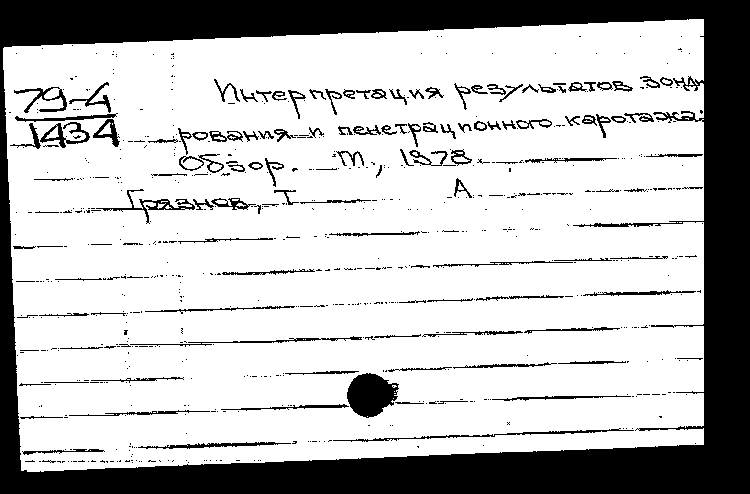 79-4
1434
Интерпретация результатов зонди
рования и пенетрационного каротажа:
Обзор. М., 1978.
Грязнов, Т А